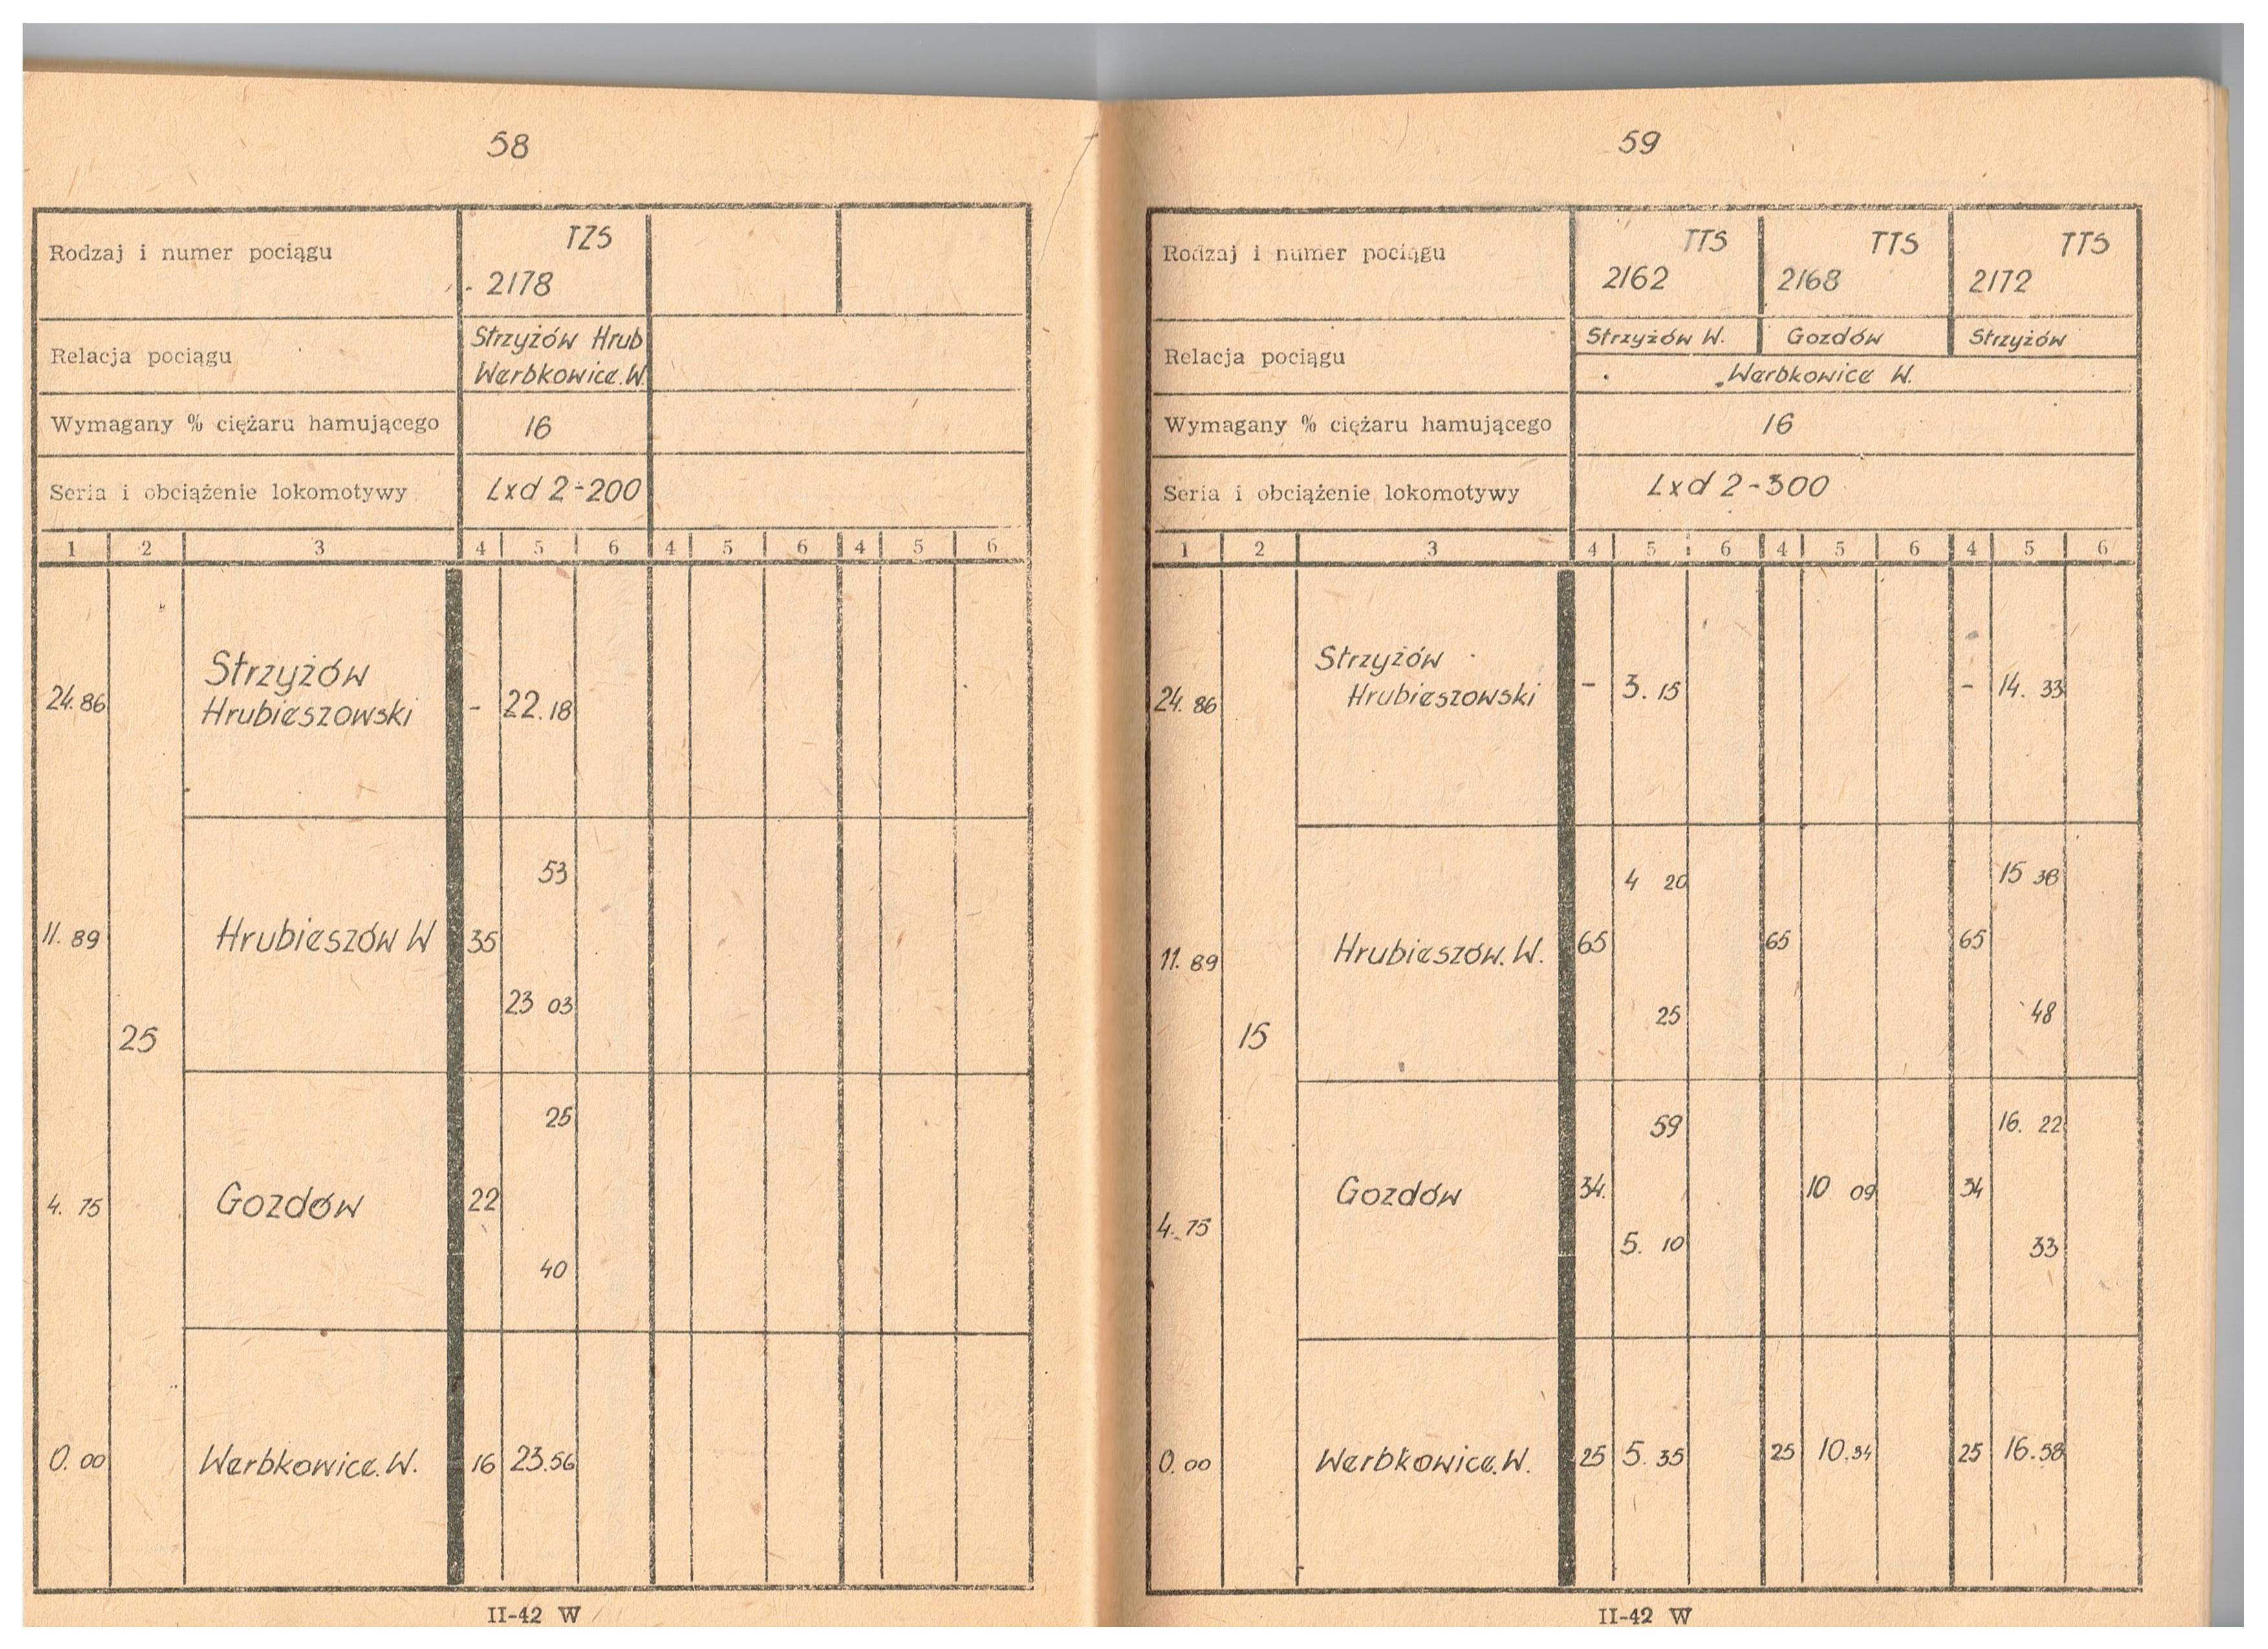 58
Rodzaj i numer pociągu
TZS
2178
Relacja pociągu
Strzyżów Hrub
Werbkowice.W.
Wymagany % ciężaru hamującego
16
Seria i obciążenie lokomotywy
Lxd 2-200
1 2 3 4 5 6 4 5 6 4 5 6
24.86 Strzyżów Hrubieszowski - 22.18
53
11.89 Hrubieszów W 35
23 03
25
25
4.75 Gozdów 22
40
0.00 Werbkowice.W. 16 23.56
II-42 W
59
Rodzaj i numer pociągu
TTS TTS TTS
2162 2168 2172
Relacja pociągu
Strzyżów W. Gozdów Strzyżów
Werbkowice W.
Wymagany % ciężaru hamującego
16
Seria i obciążenie lokomotywy
Lxd 2-300
1 2 3 4 5 6 4 5 6 4 5 6
24.86 Strzyżów Hrubieszowski - 3.15 - 14.33
4 20 15 38
11.89 Hrubieszów.W. 65 65 65
25 48
15
59 16.22
4.75 Gozdów 34. 10 09 34
5.10 33
0.00 Werbkowice.W. 25 5.35 25 10.34 25 16.58
II-42 W